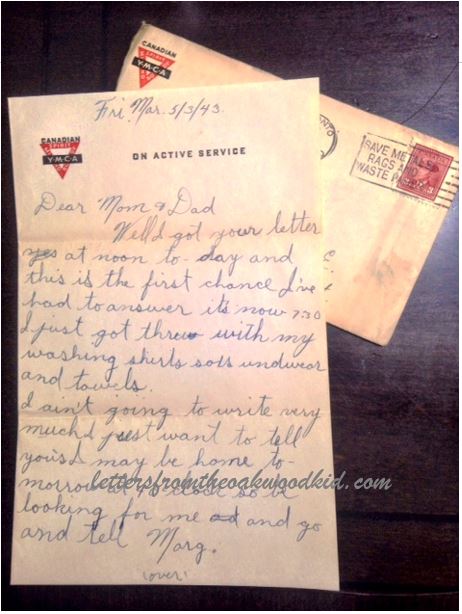 CANADIAN
Y·M·C·A
CANADIAN
SPIRIT
Y·M·C·A
Fri. Mar. 5/3/43.
ON ACTIVE SERVICE
SAVE METALS
RAGS AND
WASTE PAPER
3
Dear Mom & Dad
Well I got your letter
yes at noon to-day and
this is the first chance I've
had to answer it's now 7.30
I just got threw with my
washing shirts soxs undwear
and towels.
I ain't going to write very
much I just want to tell
you's I may be home to-
morrow at 10 so be
looking for me and go
and tell Marg.
(over)
lettersfromtheoakwoodkid.com